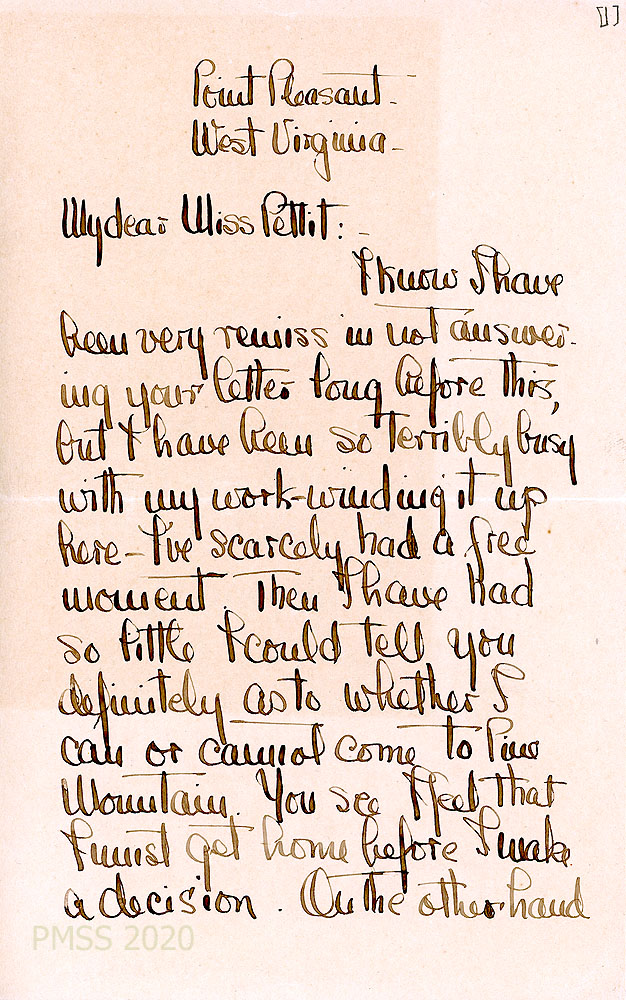 [1]
Point Pleasant.
West Virginia.
My dear Miss Pettit: -
I know I have
been very remiss in not answer-
ing your letter long before this,
but I have been so terribly busy
with my work-winding it up
here - I've scarcely had a free
moment. Then I have had
so little I could tell you
definitely as to whether I
can or cannot come to Pine
Mountain. You see I feel that
I must get home before I make
a decision. On the other hand
PMSS 2020